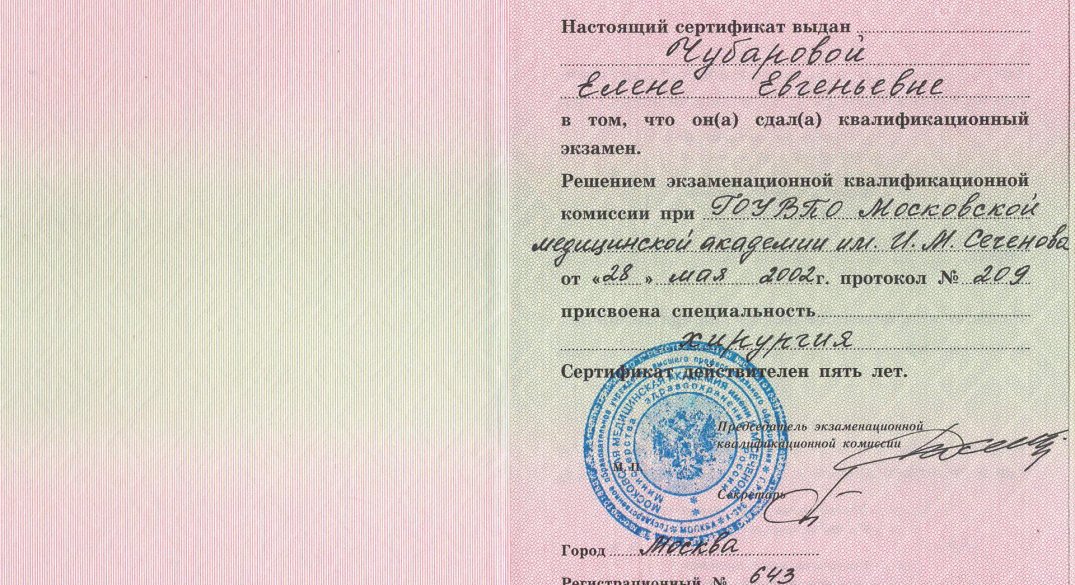 Настоящий сертификат выдан
Чубаровой
Елене Евгеньевне
в том, что он(а) сдал(а) квалификационный
экзамен.
Решением экзаменационной квалификационной
комиссии при ГОУВПО Московской
медицинской академии им. И. М. Сеченова
от «28» мая 2002г. протокол № 209
присвоена специальность
хирургия
Сертификат действителен пять лет.
Председатель экзаменационной
квалификационной комиссии
М.П.
Секретарь
МОСКОВСКАЯ МЕДИЦИНСКАЯ АКАДЕМИЯ имени И.М. СЕЧЕНОВА
Министерства здравоохранения России
МОСКВА
Город Москва
Регистрационный № 643